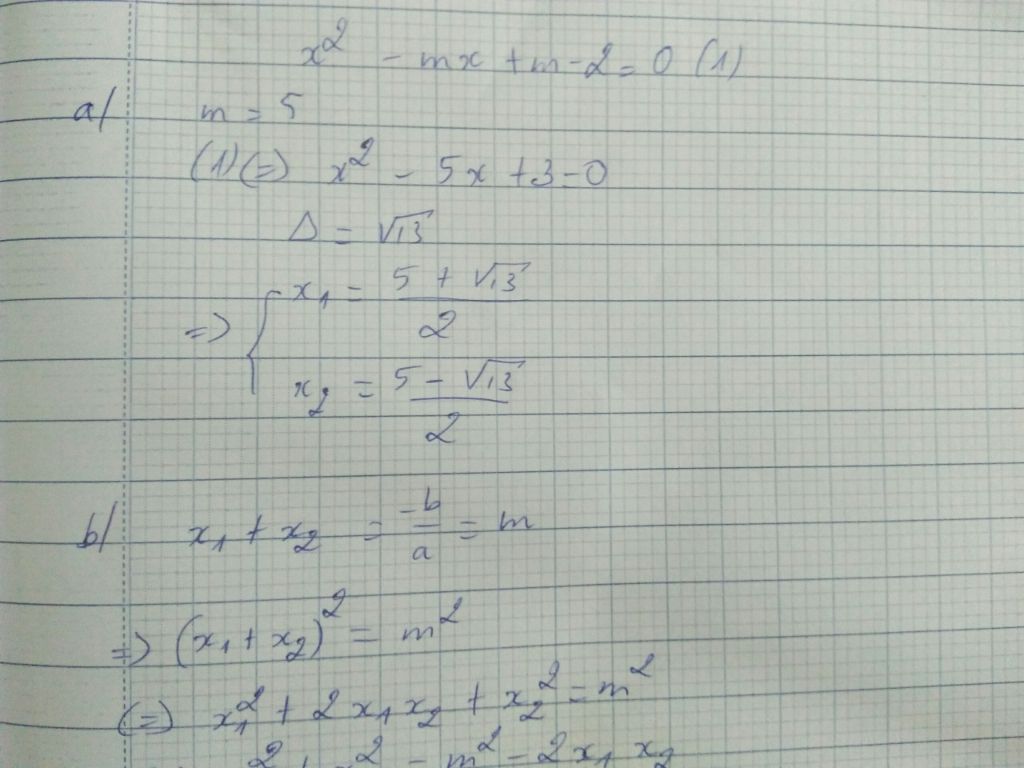 x² - mx + m - 2 = 0 (1)
a/ m = 5
(1) (=) x² - 5x + 3 = 0
Δ = √13
=) { x₁ = (5 + √13)/2
x₂ = (5 - √13)/2
b/ x₁ + x₂ = -b/a = m
=) (x₁ + x₂)² = m²
(=) x₁² + 2x₁x₂ + x₂² = m²
² + ² = m² - 2x₁x₂